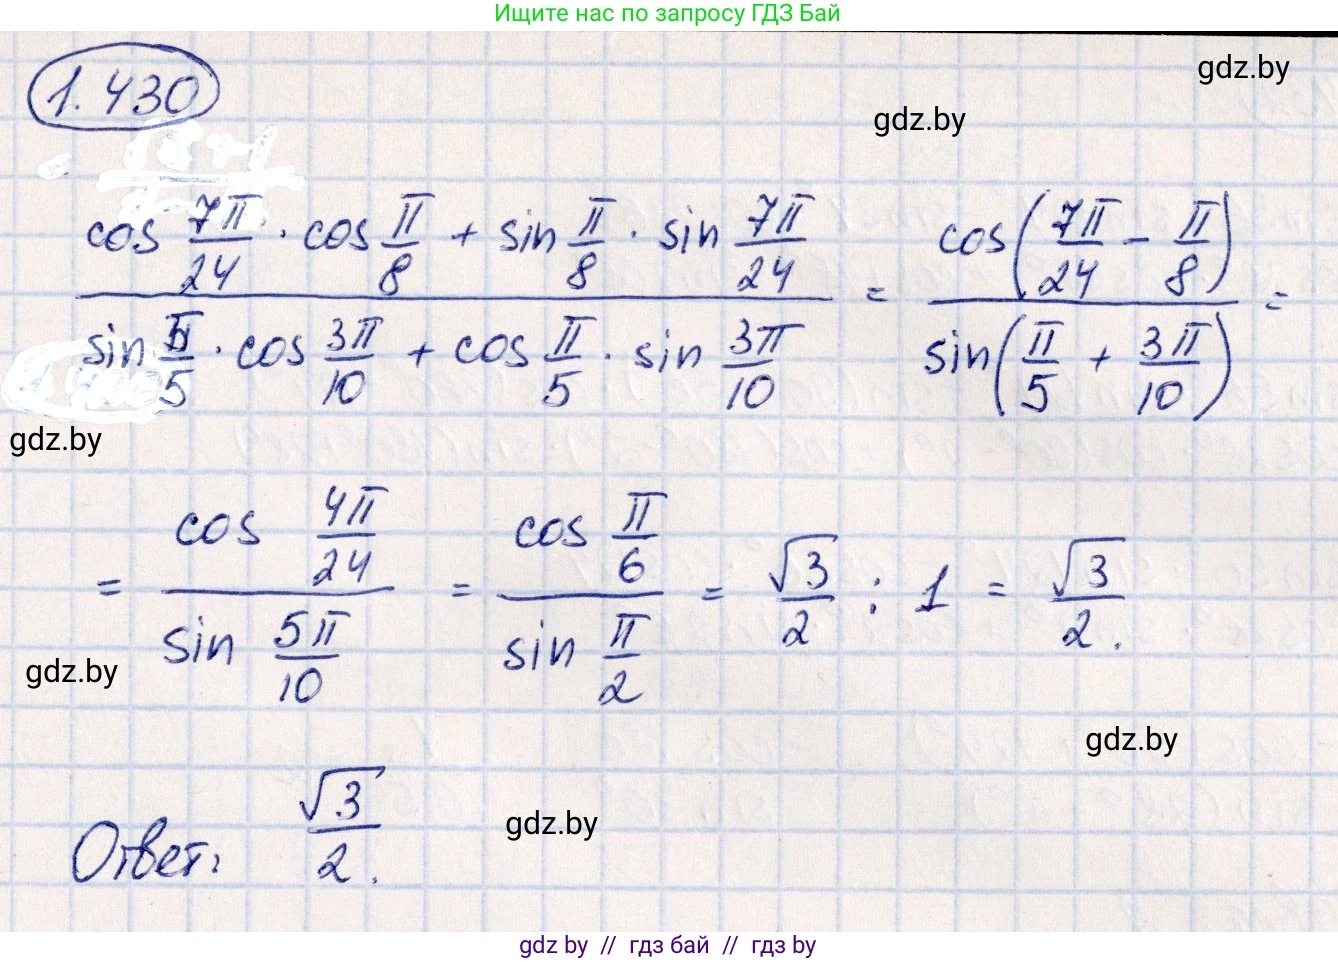 Ищите нас по запросу ГДЗ Бай
gdz.by
1.430
gdz.by
cos 7π/24 · cos π/8 + sin π/8 · sin 7π/24 / sin π/5 · cos 3π/10 + cos π/5 · sin 3π/10 = cos(7π/24 - π/8) / sin(π/5 + 3π/10) =
gdz.by
= cos 4π/24 / sin 5π/10 = cos π/6 / sin π/2 = √3/2 : 1 = √3/2.
gdz.by
gdz.by
Ответ: √3/2.
gdz.by
gdz by // гдз бай // гдз by